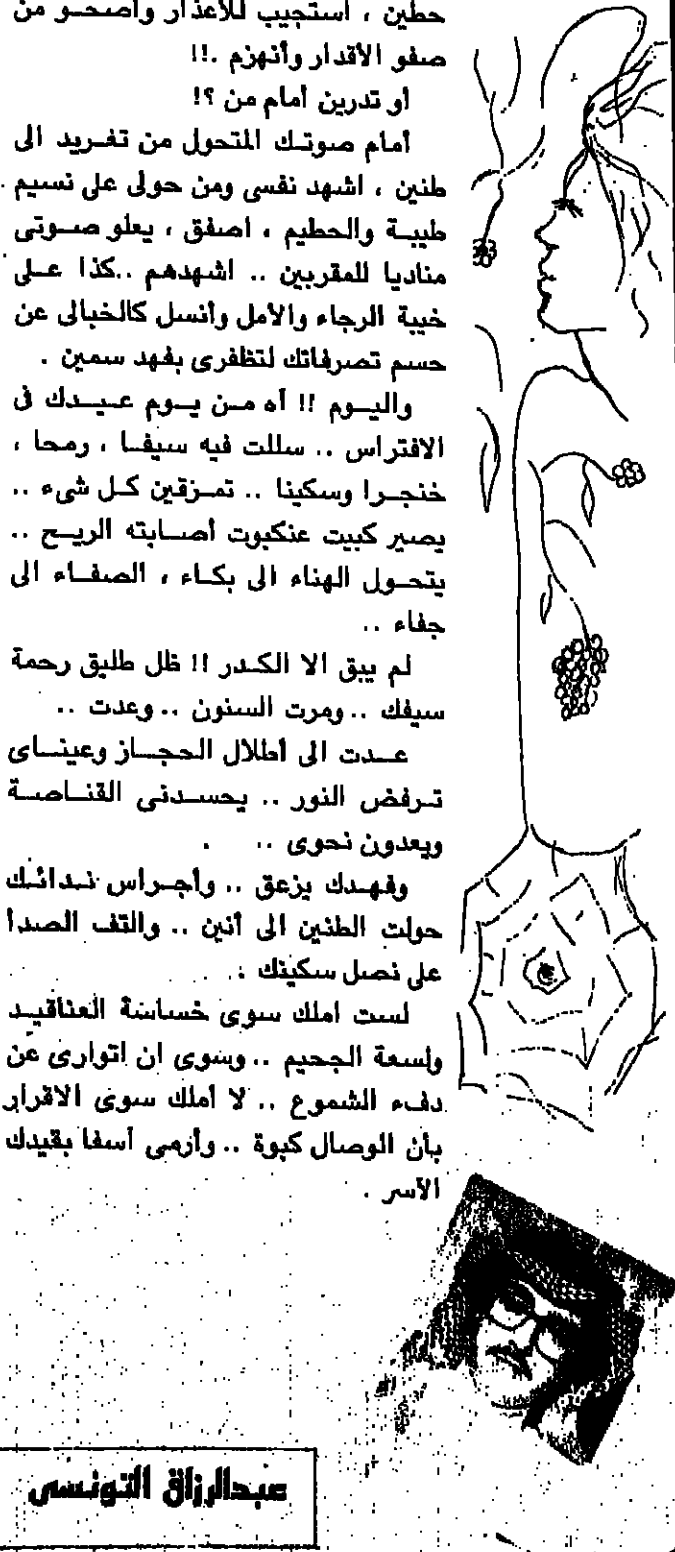 حطين ، استجيب للأعذار وأصحو من
صفو الأقدار وأنهزم .!!
أو تدرين أمام من ؟!
أمام صوتك المتحول من تغريد الى
طنين ، اشهد نفسى ومن حولى على نسيم
طيبة والحطيم ، اصفق ، يعلو صوتى
مناديا للمقربين .. اشهدهم ..كذا على
خيبة الرجاء والأمل وأنسل كالخبالى عن
حسم تصرفاتك لتظفرى بفهد سمين .
واليوم !! أه من يوم عيدك فى
الافتراس .. سللت فيه سيفا ، رمحا ،
خنجرا وسكينا .. تمزقين كل شىء ..
يصير كبيت عنكبوت أصابته الريح ..
يتحول الهناء الى بكاء ، الصفاء الى
جفاء ..
لم يبق الا الكدر !! ظل طليق رحمة
سيفك .. ومرت السنون .. وعدت ..
عدت الى أطلال الحجاز وعيناى
ترفض النور .. يحسدنى القناصة
ويعدون نحوى ..
وفهدك يزعق .. وأجراس ندائك
حولت الطنين الى أنين .. والتف الصدأ
على نصل سكينك .
لست املك سوى خساسة العناقيد
ولسعة الجحيم .. وسوى ان اتوارى عن
دفء الشموع .. لا أملك سوى الاقرار
بأن الوصال كبوة .. وأرمى أسفا بقيدك
الآسر .
عبدالرزاق التونسى